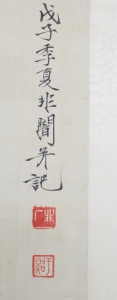 戊子季夏非闇并記
非厂